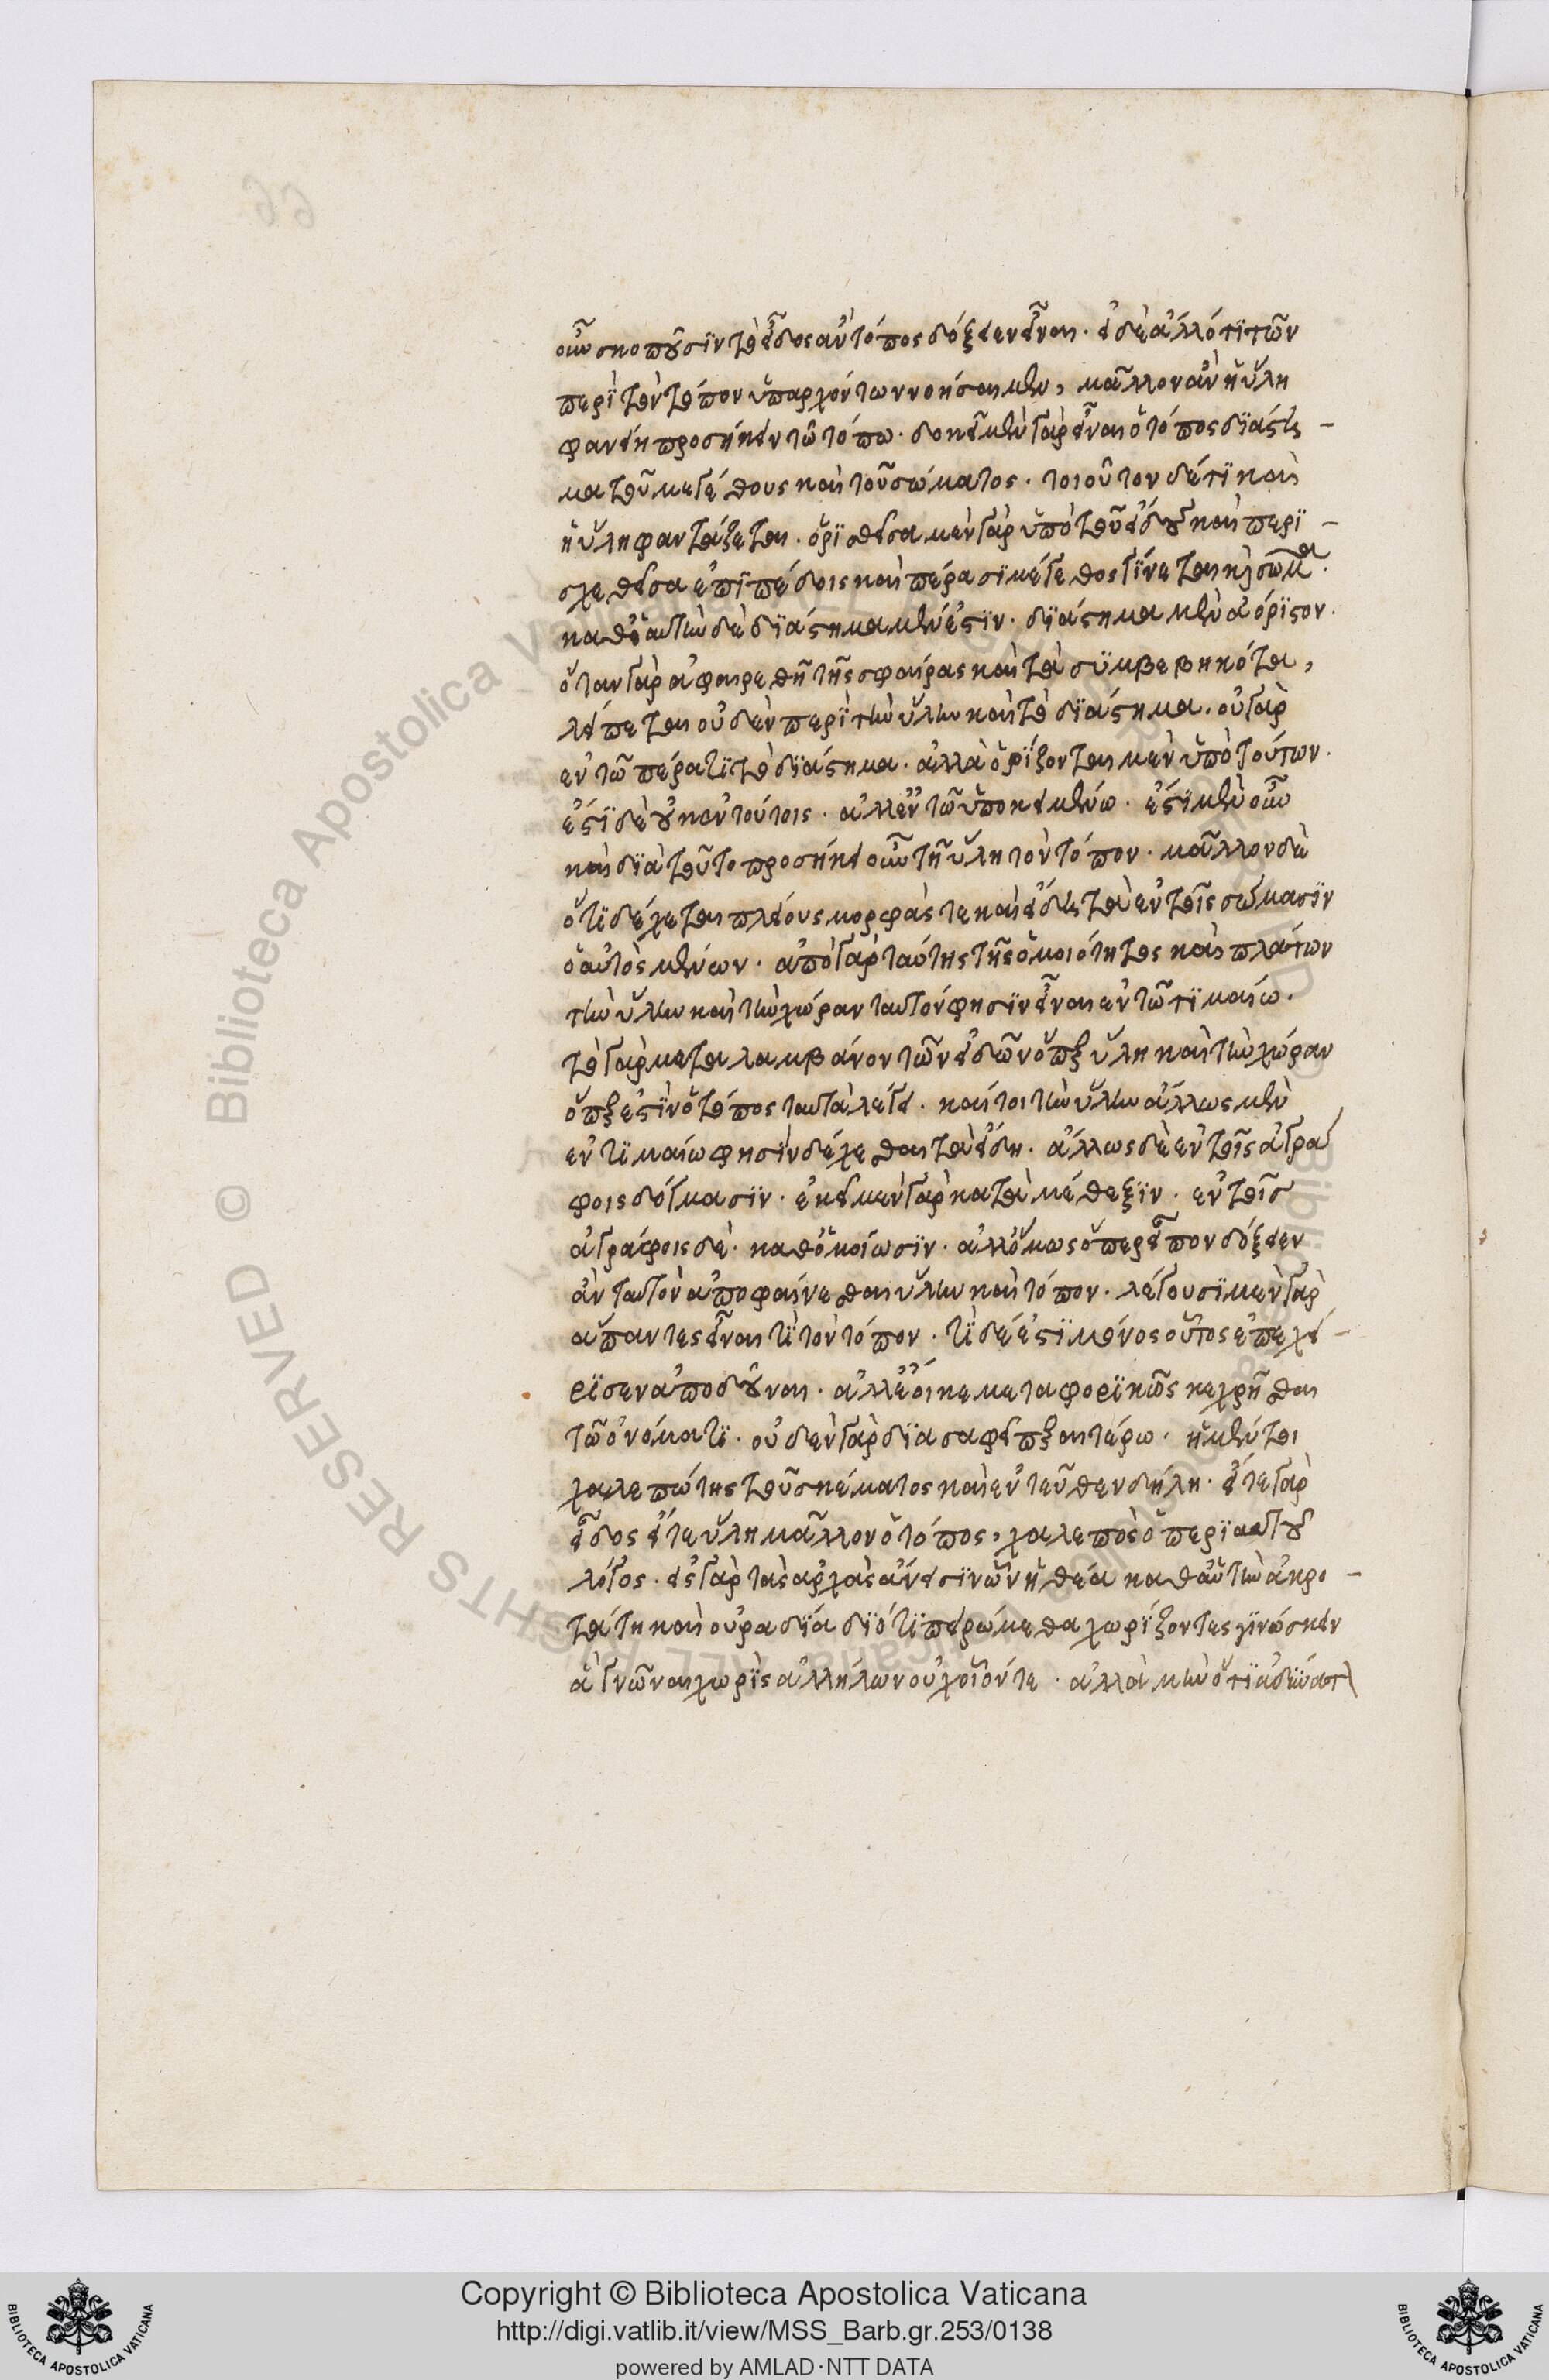 οὖν σκοποῦσιν τὸ εἶδος ἂν ὁ τόπος δόξειεν εἶναι. εἰ δὲ ἄλλό τι τῶν
περὶ τὸν τόπον ὑπαρχόντων νοήσαιμεν, μᾶλλον ἂν ἡ ὕλη
φανείη προσήκειν τῷ τόπω. δοκεῖ μὲν γὰρ εἶναι ὁ τόπος διάστη-
μα τοῦ μεγέθους καὶ τοῦ σώματος. τοιοῦτον δέ τι καὶ
ἡ ὕλη φαντάζεται. ὁρισθεῖσα μὲν γὰρ ὑπὸ τοῦ εἴδους καὶ περι-
σχεθεῖσα ἐπιπέδοις καὶ πέρασι μέγεθος γίνεται καὶ σῶμα.
καθ' αὑτὴν δὲ διάστημα μέν ἐστιν. διάστημα μὲν ἀόριστον.
ὅταν γὰρ ἀφαιρεθῆ τῆς σφαίρας καὶ τὰ συμβεβηκότα,
λείπεται οὐδὲν περὶ τὴν ὕλην καὶ τὸ διάστημα. οὐ γὰρ
ἐν τῷ πέρατι τὸ διάστημα. ἀλλὰ ὁρίζονται μὲν ὑπὸ τούτων.
ἐστὶ δὲ οὐκ ἐν τούτοις. ἀλλ' ἐν τῷ ὑποκειμένω. ἔστι μὲν οὖν
καὶ διὰ τοῦτο προσήκει οὖν τῆ ὕλη τὸν τόπον. μᾶλλον δὲ
ὅτι δέχεται πλείους μορφάς τε καὶ εἴδη τὰ ἐν τοῖς σώμασιν
ὁ αὐτὸς μένων. ἀπὸ γὰρ ταύτης τῆς ὁμοιότητος καὶ πλάτων
τὴν ὕλην καὶ τὴν χώραν ταυτόν φησιν εἶναι ἐν τῷ τιμαίω.
τὸ γὰρ μεταλαμβάνον τῶν εἰδῶν ὅπερ ὕλη καὶ τὴν χώραν
ὅπερ ἐστὶν ὁ τόπος ταυτὰ λέγει. καίτοι τὴν ὕλην ἄλλως μὲν
ἐν τιμαίω φησὶν δέχεσθαι τὰ εἴδη. ἄλλως δὲ ἐν τοῖς ἀγρά
φοις δόγμασιν. ἐκεῖ μὲν γὰρ κατὰ μέθεξιν. ἐν τοῖς
ἀγράφοις δὲ. καθ' ὁμοίωσιν. ἀλλ' ὅμως ὅπερ εἶπον δόξειεν
ἂν ταυτὸν ἀποφαίνεσθαι ὕλην καὶ τόπον. λέγουσι μὲν γὰρ
ἅπαντες εἶναι τὶ τὸν τόπον. τὶ δέ ἐστι μόνος οὗτος ἐπεχεί-
ρισεν ἀποδοῦναι. ἀλλ' ἔοικε μεταφορικῶς κεχρῆσθαι
τῷ ὀνόματι. οὐδὲν γὰρ διασαφεῖ περαιτέρω. ἡ μέντοι
χαλεπώτης τοῦ σκέματος καὶ ἐντεῦθεν δήλη. εἴτε γὰρ
εἶδος εἴτε ὕλη μᾶλλον ὁ τόπος, χαλεπὸς ὁ περὶ αὐτοῦ
λόγος. εἰς γὰρ τὰς ἀρχὰς ἄνεισιν ὧν ἡ θέα καθ' αὑτὴν ἀκρο-
τάτη καὶ οὐ ῥαδία διότι πειρώμεθα χωρίζοντες γινώσκειν
ἃ γνῶναι χωρὶς ἀλλήλων οὐχ οἷόν τε. ἀλλὰ μὴν ὅτι ἀδύνατ
Copyright © Biblioteca Apostolica Vaticana
http://digi.vatlib.it/view/MSS_Barb.gr.253/0138
powered by AMLAD·NTT DATA